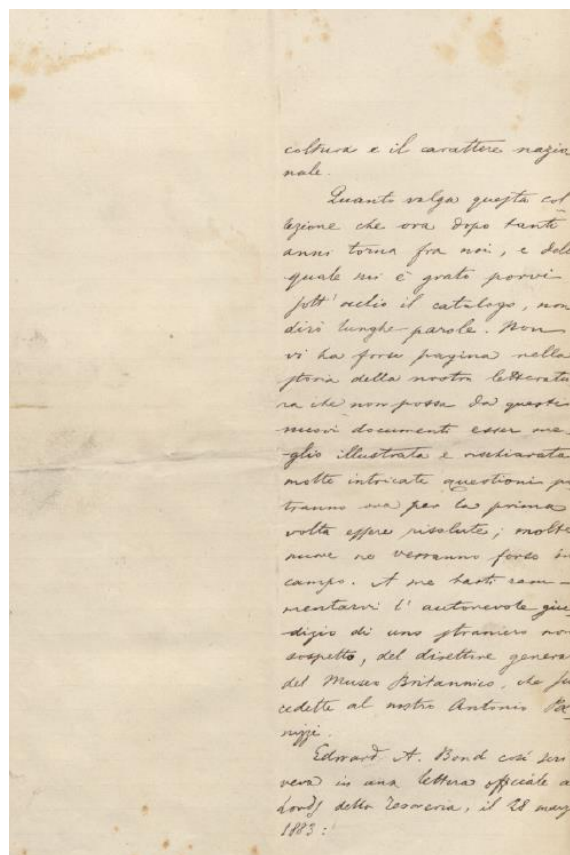 coltura e il carattere nazio
nale.
Quanto valga questa col
lezione che ora dopo tanti
anni torna fra noi, e della
quale mi è grato porvi
sott' occhio il catalogo, non
dirò lunghe parole. Non
vi ha forse pagina nella
storia della nostra letteratu
ra che non possa da questi
nuovi documenti esser me-
glio illustrata e rischiarata
molte intricate questioni po
tranno ora per la prima
volta essere risolute; molte
nuove ne verranno forse in
campo. A me basti ram-
mentarvi l' autorevole giu
dizio di uno straniero non
sospetto, del direttore genera
del Museo Britannico, che su
cedette al nostro Antonio Pa
nizzi.
Edward A. Bond così scri
veva in una lettera officiale a
Lords della Tesoreria, il 28 marzo
1883: